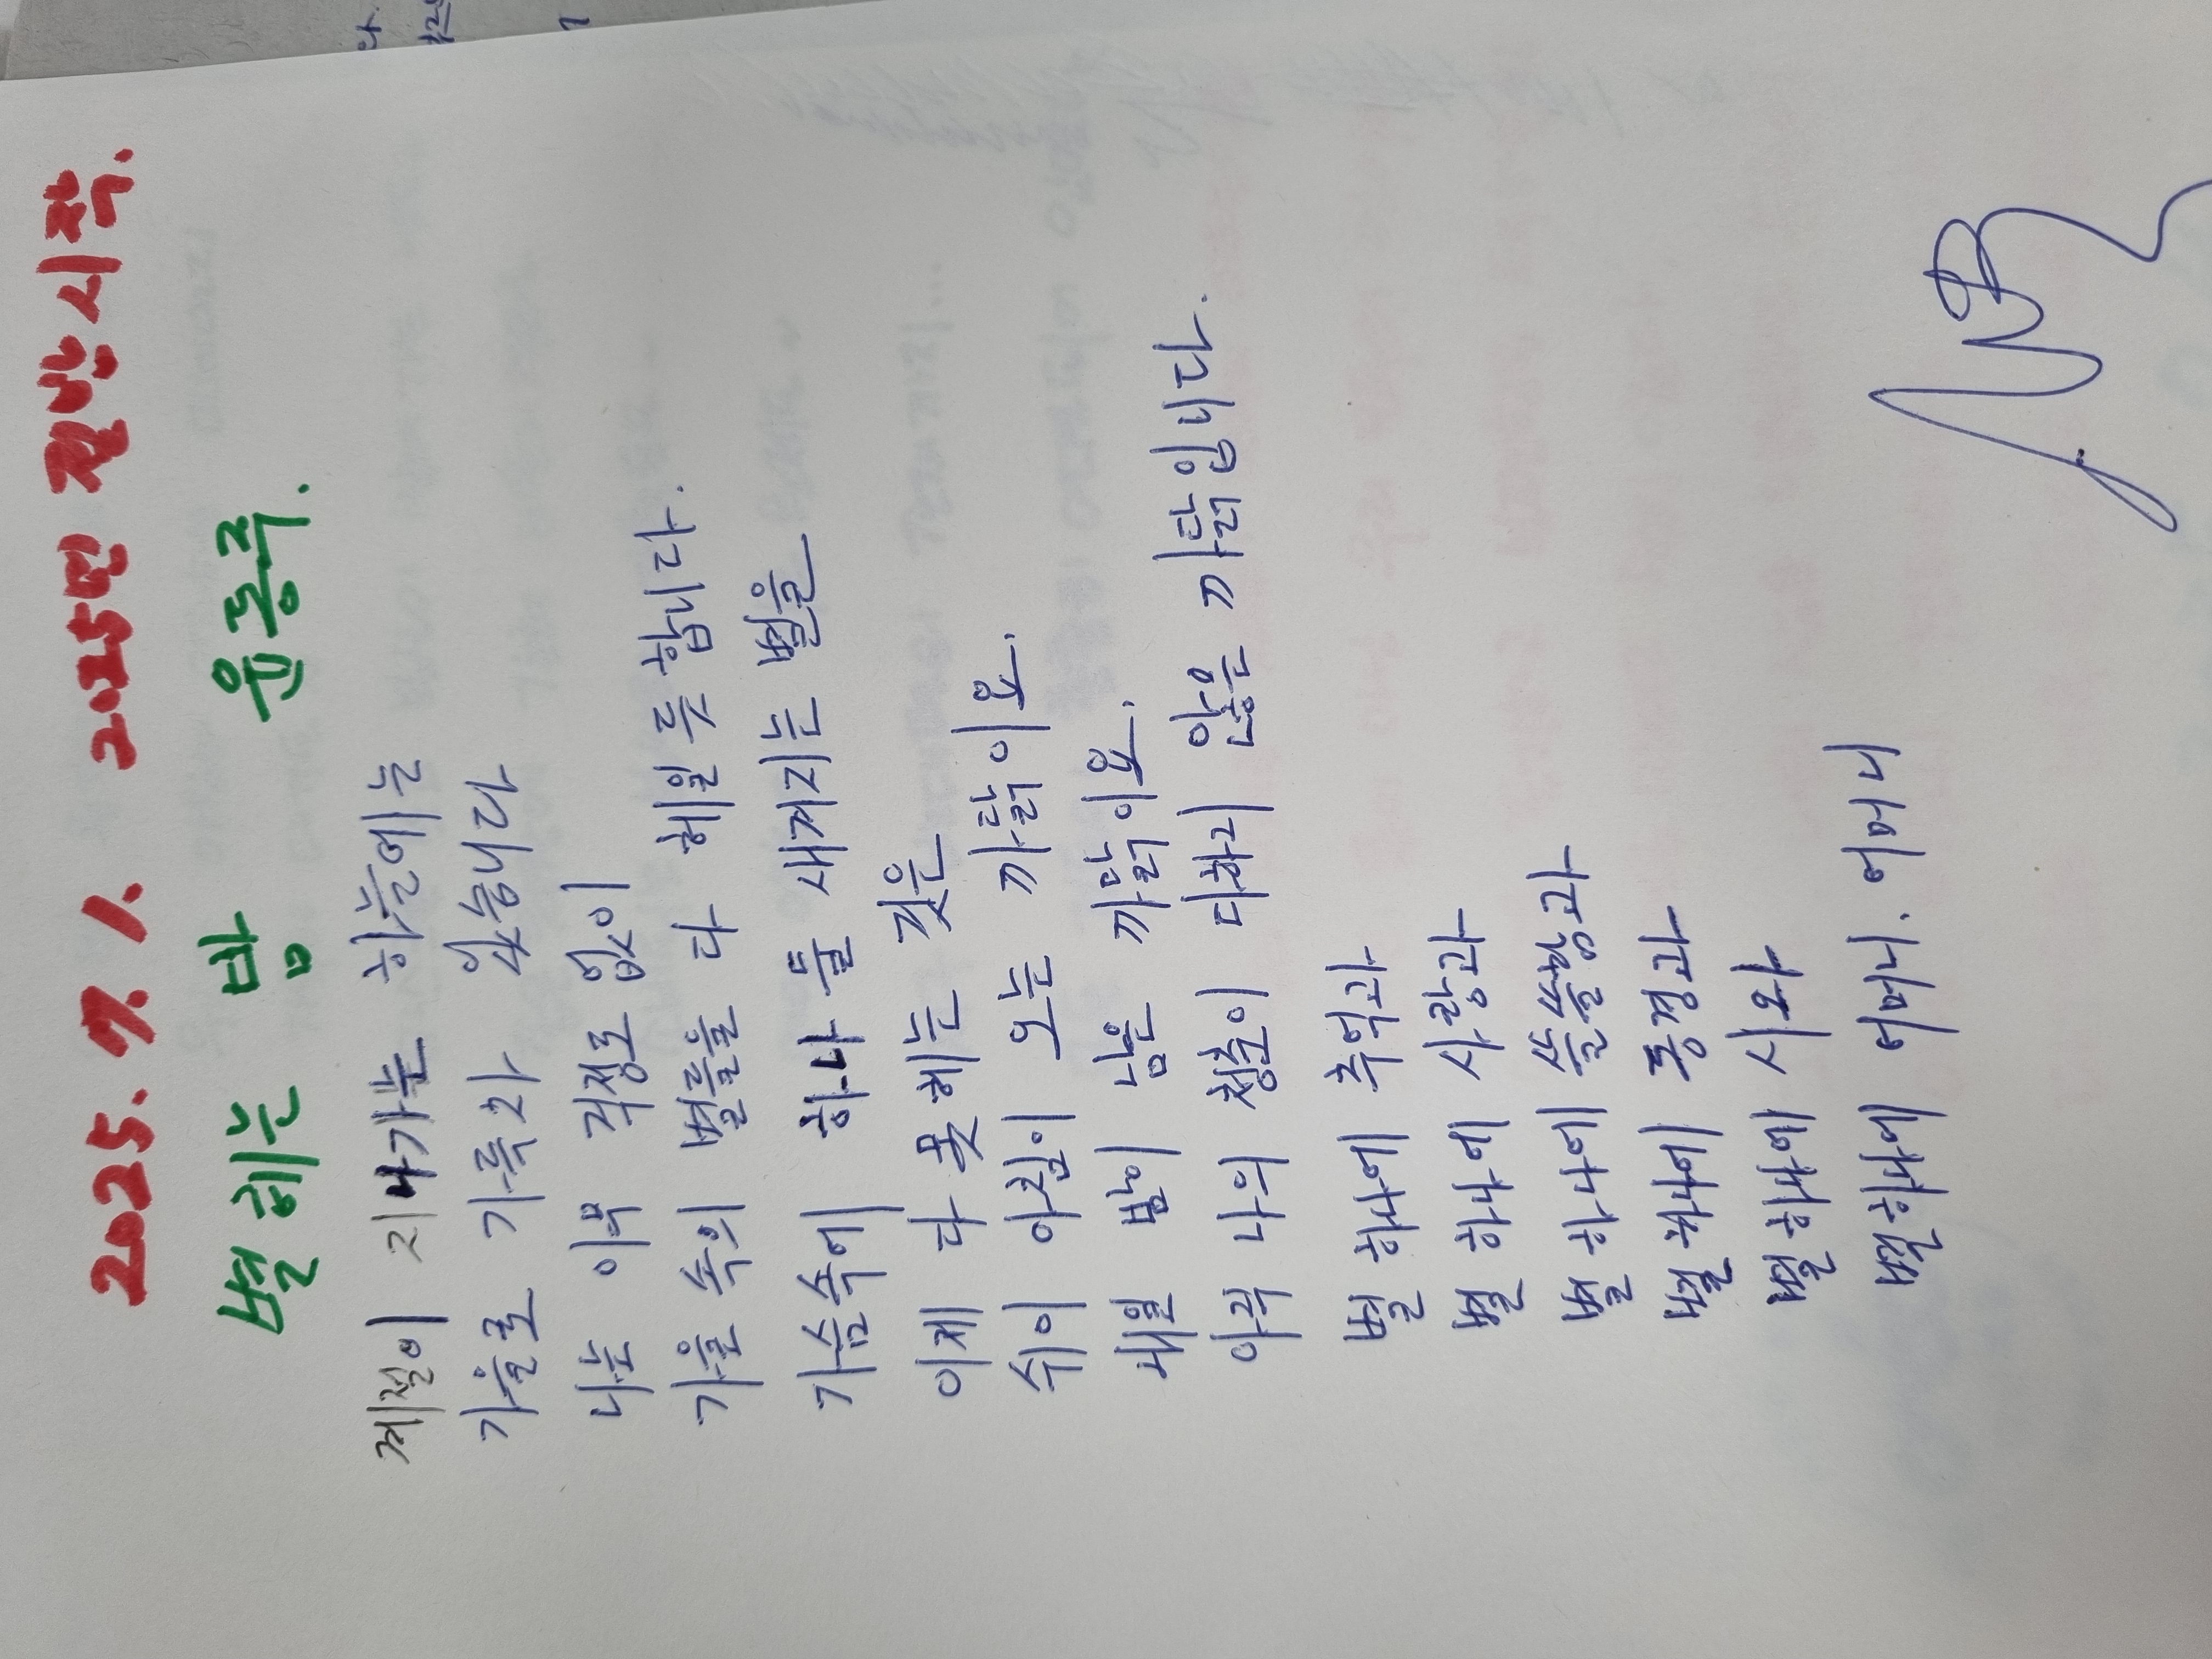 2025. 7. 1. 2025년 절반 시작.
별 헤는 밤 윤동주.
계절이 지나가는 하늘에는
가을로 가득차 있습니다
나는 아무 걱정도 없이
가을 속의 별들을 다 헤일 듯 합니다.
가슴속에 하나 둘 새겨지는 별을
이제 다 못 헤는 것은
쉬이 아침이 오는 까닭이요.
내일 밤이 남은 까닭이요.
아직 나의 청춘이 다하지 않은 까닭입니다.
별 하나에 추억과
별 하나에 사랑과
별 하나에 쓸쓸함과
별 하나에 동경과
별 하나에 시와
별 하나에 어머니. 어머니